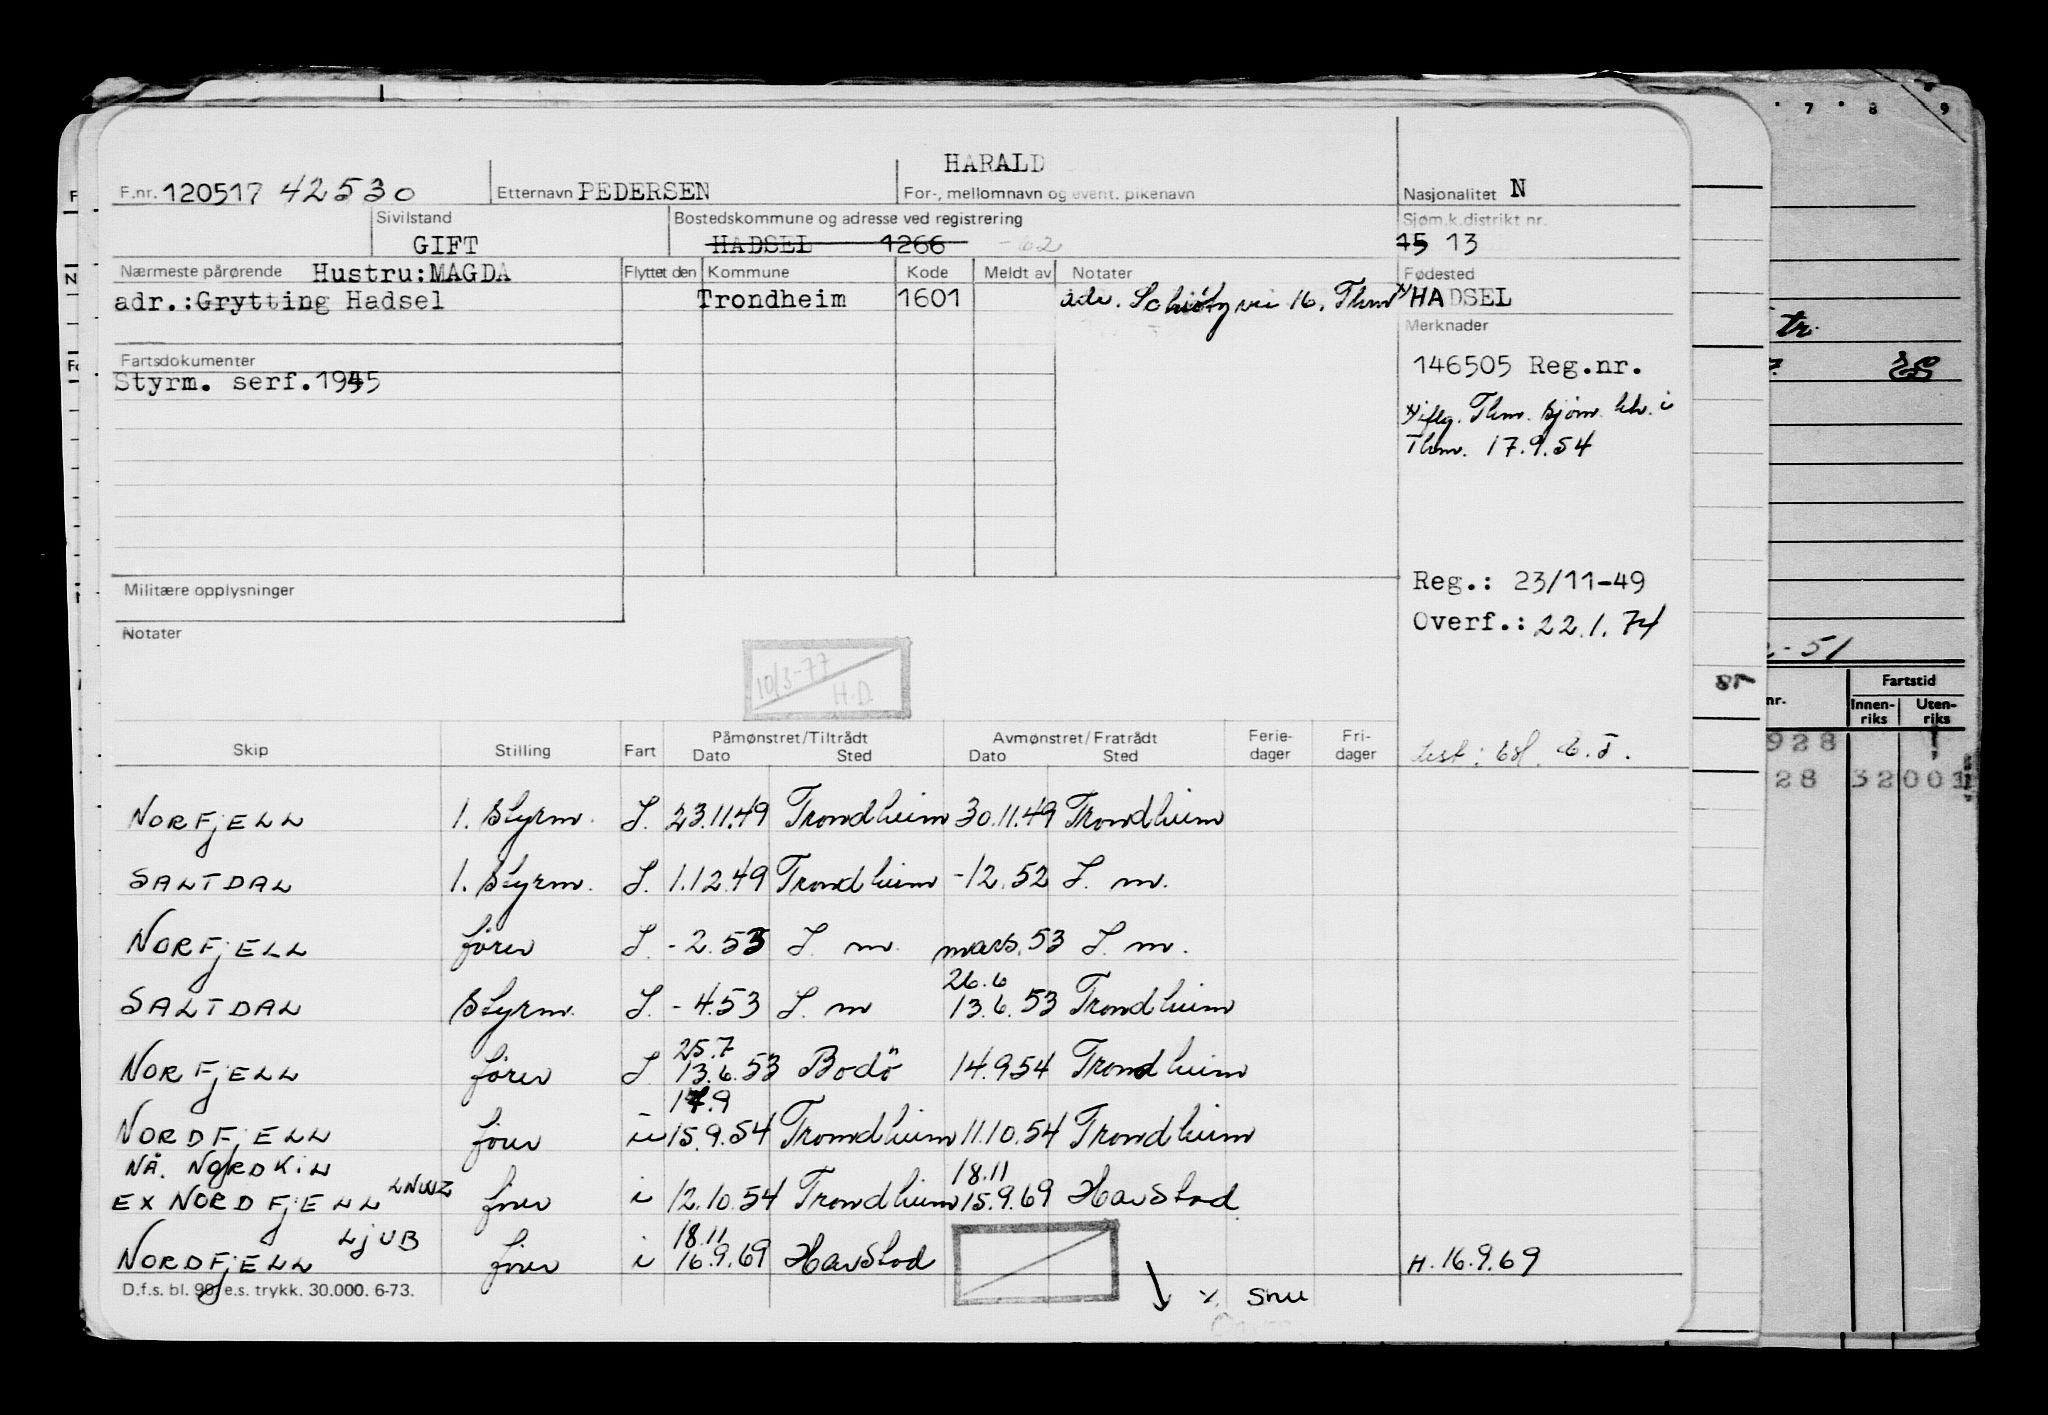 HARALD
F.nr. 120517 42530 Etternavn PEDERSEN For-, mellomnavn og event. pikenavn Nasjonalitet N
Sivilstand GIFT Bostedskommune og adresse ved registrering HADSEL 1266 -62 Sjøm.k.distrikt nr. 15 13
Nærmeste pårørende Hustru:MAGDA Flyttet den Kommune Kode Meldt av Notater Fødested
adr.:Grytting Hadsel Trondheim 1601 adr. 16, Thm x) HADSEL
Merknader
Fartsdokumenter 146505 Reg.nr.
Styrm. serf.1945
x) iflg. Thm. sjøm. ktr. i
Thm. 17.9.54
Militære opplysninger Reg.: 23/11-49
Overf.: 22.1.74
Notater
10/3-77
H.D.
Skip Stilling Fart Påmønstret/Tiltrådt Dato Sted Avmønstret/Fratrådt Dato Sted Ferie-dager Fri-dager
NORFJELL 1. Styrm. S. 23.11.49 Trondheim 30.11.49 Trondheim
SALTDAL 1. Styrm. S. 1.12.49 Trondheim -12.52 S. m.
NORFJELL fører S. -2.53 S. m. mars.53 S. m.
26.6
SALTDAL Styrm. S. -4.53 S. m 13.6.53 Trondheim
25.7
NORFJELL fører S 13.6.53 Bodö 14.9.54 Trondheim
14.9
NORDFJELL fører i 15.9.54 Trondheim 11.10.54 Trondheim
NÅ. NORDKIN 18.11
EX NORDFJELL LNWZ fører i 12.10.54 Trondheim 15.9.69 Havstad
LJUB 18.11
NORDFJELL fører i 16.9.69 Havstad H. 16.9.69
D.f.s. bl. 90, e.s. trykk. 30.000. 6-73. Snu
7 8 9
tr.
2-51
Fartstid
nr. Innen-riks Uten-riks
928
28 32001